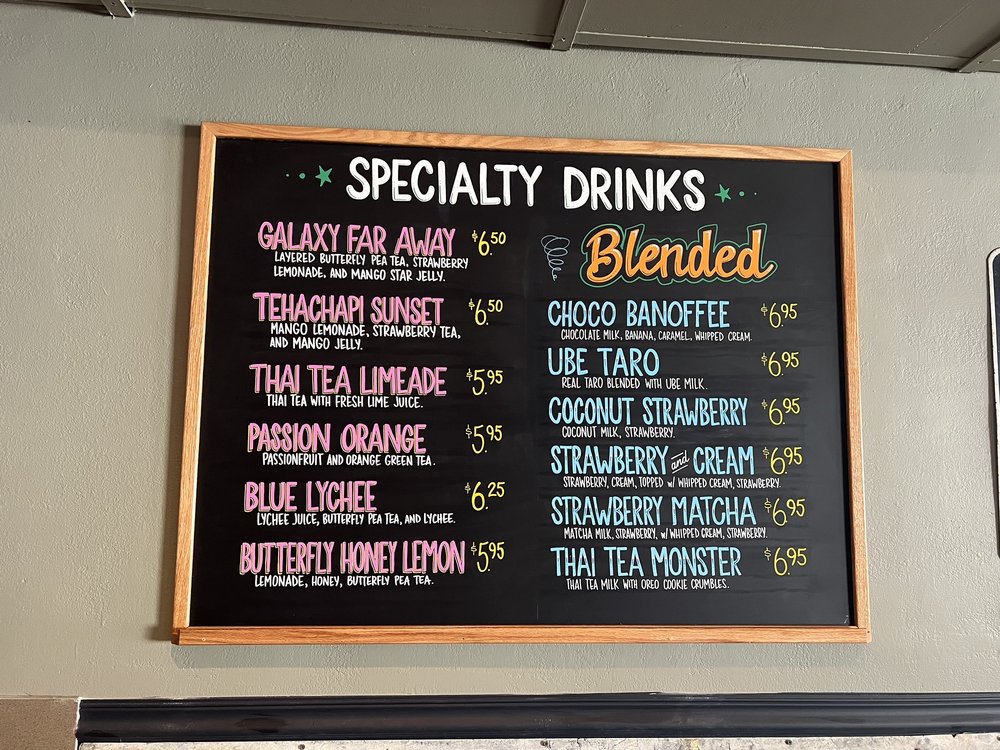 SPECIALTY DRINKS
GALAXY FAR AWAY $6.50
LAYERED BUTTERFLY PEA TEA, STRAWBERRY
LEMONADE, AND MANGO STAR JELLY.
TEHACHAPI SUNSET $6.50
MANGO LEMONADE, STRAWBERRY TEA,
AND MANGO JELLY.
THAI TEA LIMEADE $5.95
THAI TEA WITH FRESH LIME JUICE.
PASSION ORANGE $5.95
PASSIONFRUIT AND ORANGE GREEN TEA.
BLUE LYCHEE $6.25
LYCHEE JUICE, BUTTERFLY PEA TEA, AND LYCHEE.
BUTTERFLY HONEY LEMON $5.95
LEMONADE, HONEY, BUTTERFLY PEA TEA.
Blended
CHOCO BANOFFEE $6.95
CHOCOLATE MILK, BANANA, CARAMEL, WHIPPED CREAM.
UBE TARO $6.95
REAL TARO BLENDED WITH UBE MILK.
COCONUT STRAWBERRY $6.95
COCONUT MILK, STRAWBERRY.
STRAWBERRY and CREAM $6.95
STRAWBERRY, CREAM, TOPPED w/ WHIPPED CREAM, STRAWBERRY.
STRAWBERRY MATCHA $6.95
MATCHA MILK, STRAWBERRY, w/ WHIPPED CREAM, STRAWBERRY.
THAI TEA MONSTER $6.95
THAI TEA MILK WITH OREO COOKIE CRUMBLES.